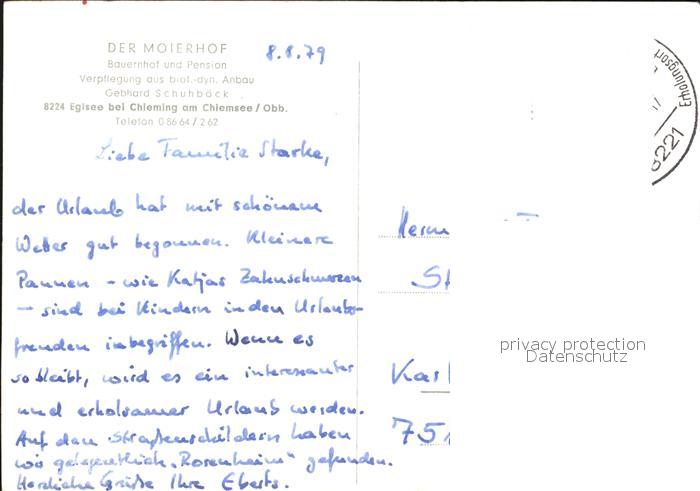 DER MOIERHOF
Bauernhof und Pension
Verpflegung aus biol.-dyn. Anbau
Gebhard Schuhböck
8224 Egisee bei Chieming am Chiemsee/Obb.
Telefon 08664/262
8.8.79
Liebe Familie Starke,
der Urlaub hat mit schönem
Wetter gut begonnen. Kleinere
Pannen - wie Katjas Zahnschmerzen
- sind bei Kindern in den Urlaubs-
freuden inbegriffen. Wenn es
so bleibt, wird es ein interessanter
und erholsamer Urlaub werden.
Auf den Straßenschildern haben
wir gelegentlich "Rosenheim" gefunden.
Herzliche Grüße Ihre Eberts.
Herrn
St
Karl
75
Erholungsort
8221
privacy protection
Datenschutz